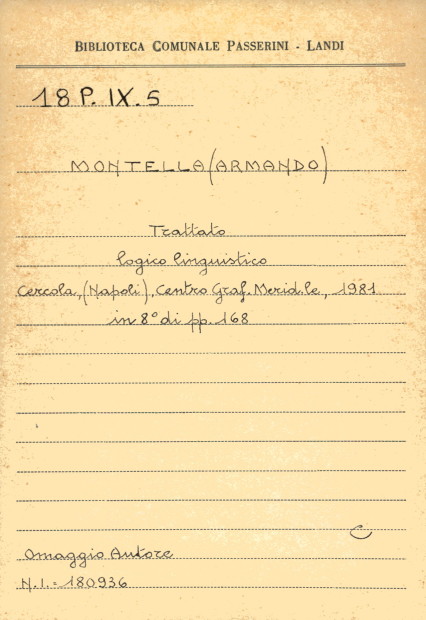 BIBLIOTECA COMUNALE PASSERINI - LANDI
18 P. IX. 5
MONTELLA (ARMANDO)
Trattato
logico linguistico
Cercola, (Napoli), Centro Graf. Merid.le, 1981
in 8° di pp. 168
C
Omaggio Autore
N. I. = 180936